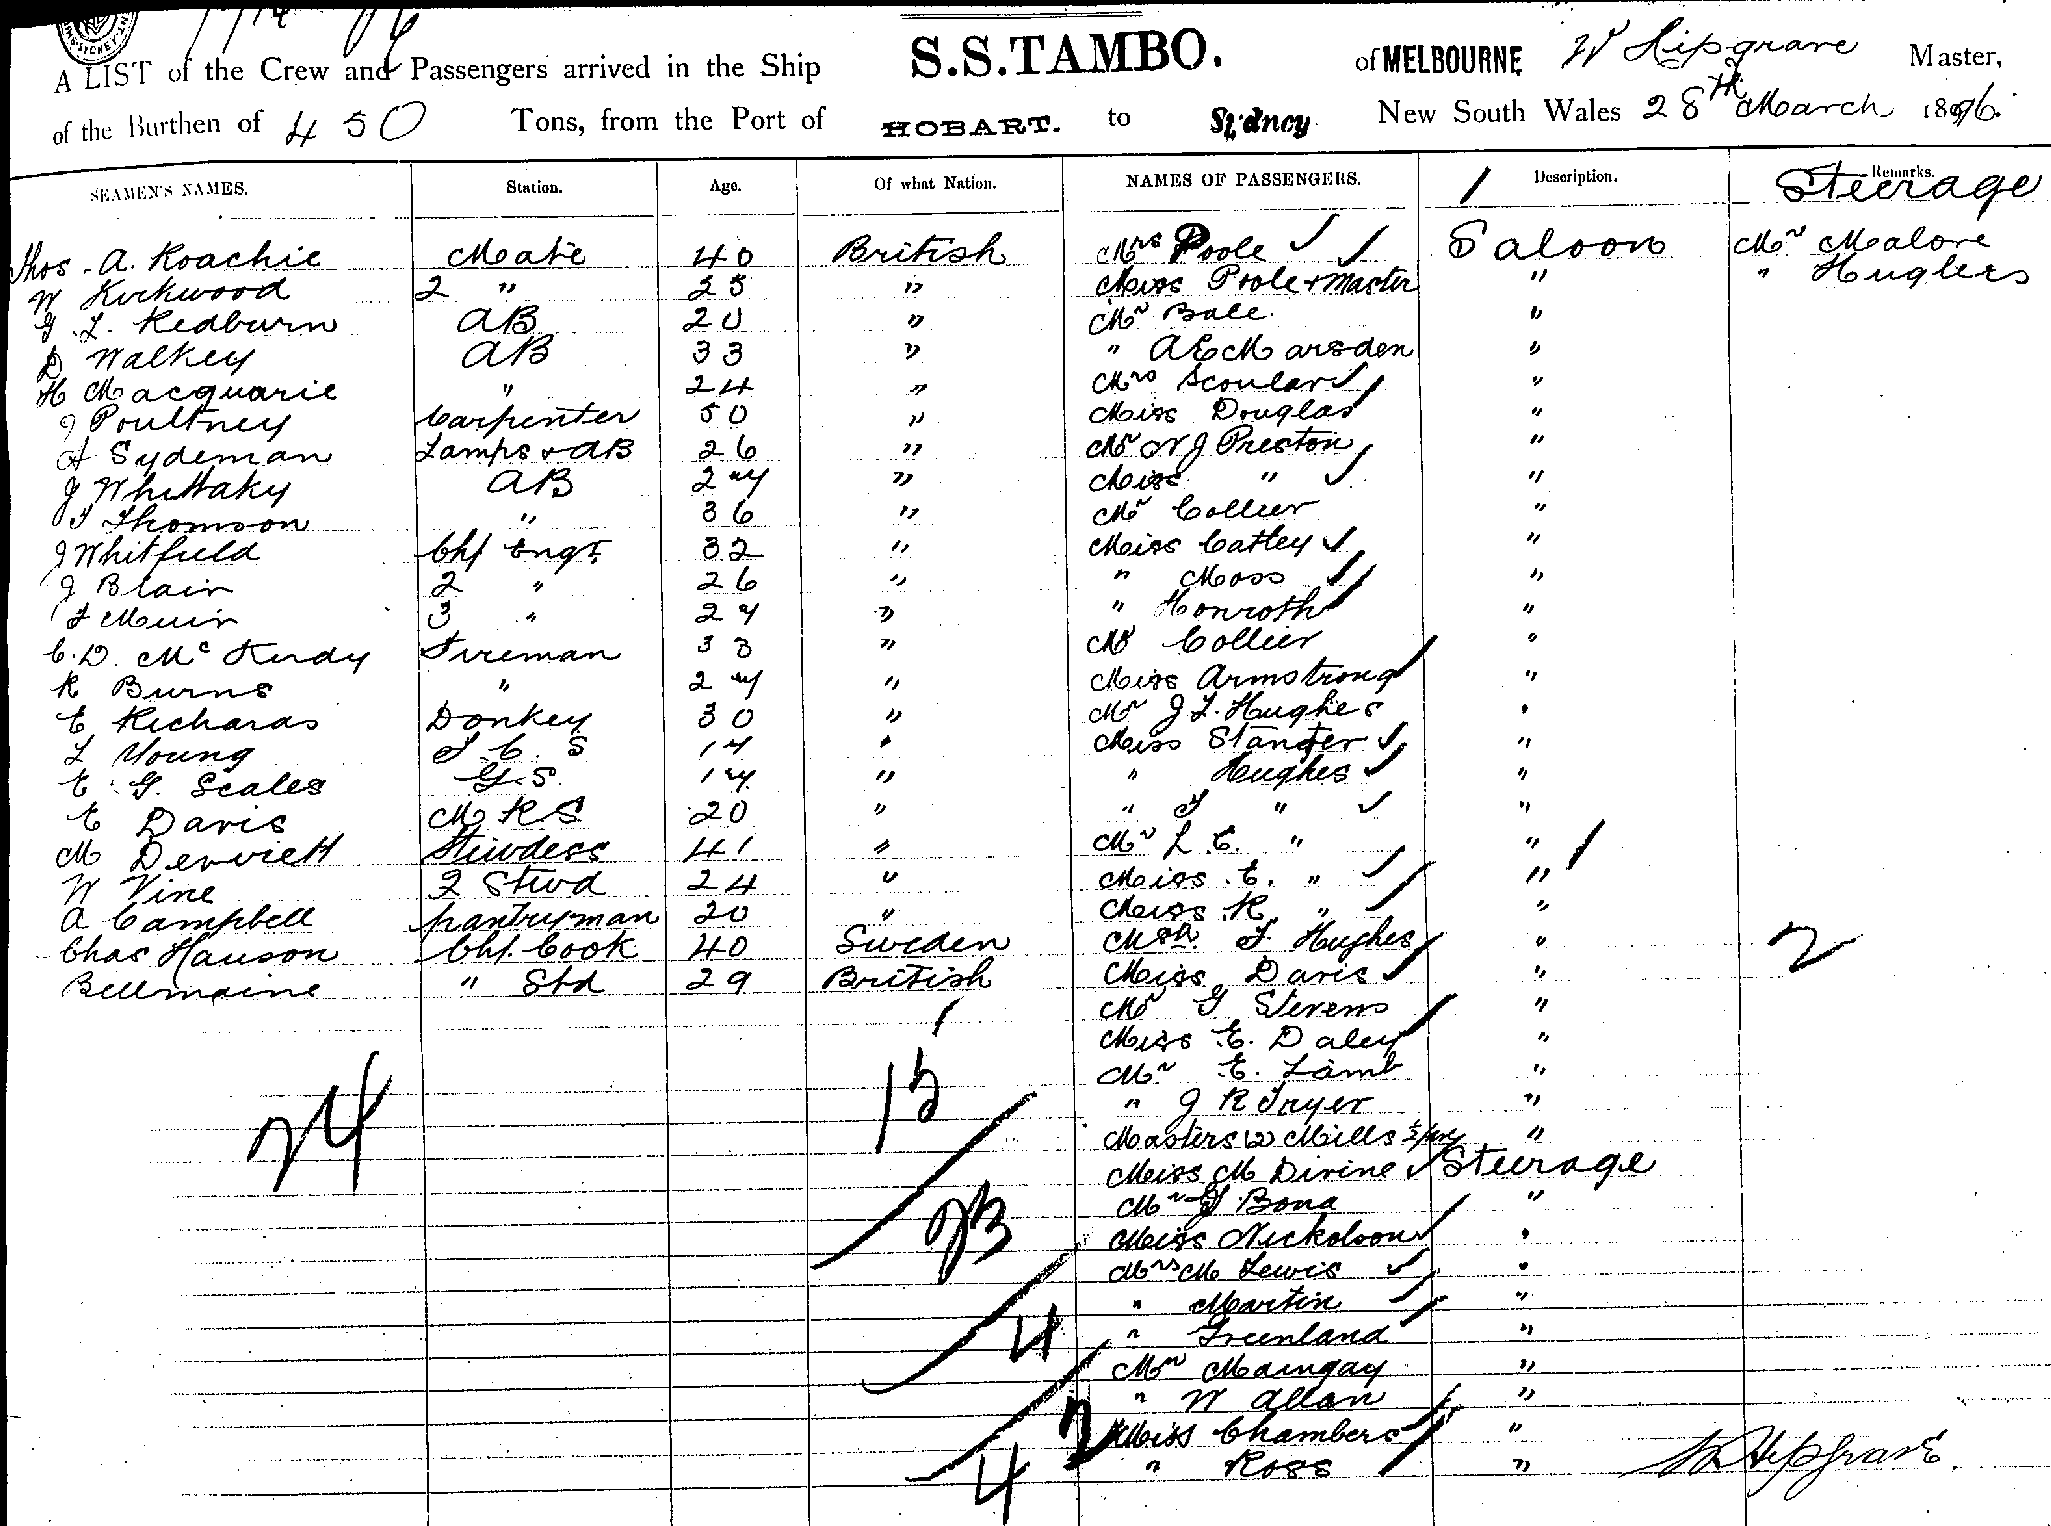 A LIST of the Crew and Passengers arrived in the Ship S.S. TAMBO. of MELBOURNE W Hipgrave Master,
of the Burthen of 450 Tons, from the Port of HOBART. to Sydney New South Wales 28th March 1896.
SEAMEN'S NAMES. Station. Age. Of what Nation. NAMES OF PASSENGERS. 1 Description. Remarks. Steerage
Thos. A. Roachie Mate 40 British Mrs Poole Saloon Mr Malore
W Kirkwood 2 " 25 " Miss Poole + Master " " Huglers
G. L. Redburn AB 20 " Mr Bale "
D Walkey AB 33 " " A E Marsden "
H Macquarie " 24 " Mrs Scoular "
J Poultney Carpenter 50 " Miss Douglas "
A Sydeman Lamps & AB 26 " Mr N J Preston "
J Whittaky AB 27 " Miss " "
T Thomson " 36 " Mr Collier "
J Whitfield Chf Engr 32 " Miss Catley "
J Blair 2 " 26 " " Moss "
T Muir 3 " 27 " " Honroth "
C. D. Mc Kurdy Fireman 33 " Mr Collier "
R Burns " 27 " Miss Armstrong "
E Richards Donkey 30 " Mr J L. Hughes "
L Young F C. S 17 " Miss Stanger "
E. G. Scales G. S. 17 " " Hughes "
E Davis M R S 20 " " F " "
M Derviett Stewdess 41 " Mr L C. " "
W Vine 2 Stwd 24 " Miss E. " "
A Campbell pantryman 20 " Miss K. " "
Chas Hanson Chf. Cook 40 Sweden Mstr F. Hughes " 2
Bellmaine " Std 29 British Miss Davis "
Mr G Stevens "
Miss E. Daley "
Mr E. Lamb "
" J R Fryer "
Masters (2) Mills "
Miss M Divine Steerage
Mr G Bona "
Miss Nickolson "
Mrs M Lewis "
" Martin "
" Greenland "
Mr Maingay "
" W Allan "
Miss Chambers "
" Ross "
24
15
23
4
2
4
W Hipgrave.